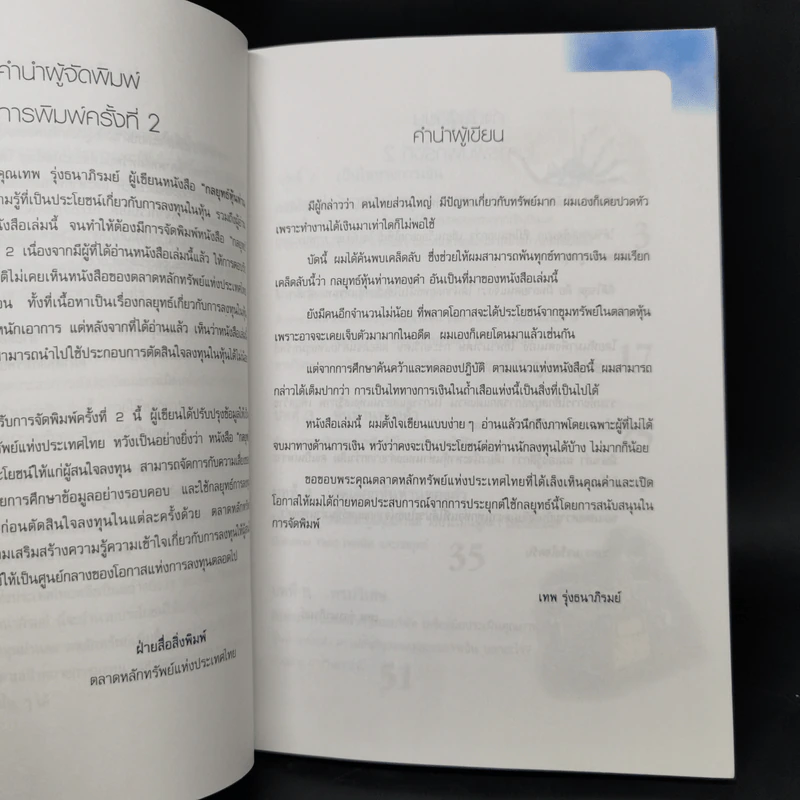 คำนำผู้จัดพิมพ์
การพิมพ์ครั้งที่ 2
คุณเทพ รุ่งธนาภิรมย์ ผู้เขียนหนังสือ "กลยุทธ์หุ้นห่าน
ความรู้ที่เป็นประโยชน์เกี่ยวกับการลงทุนในหุ้น รวมถึงผู้อ่าน
หนังสือเล่มนี้ จนทำให้ต้องมีการจัดพิมพ์หนังสือ "กลยุทธ์
2 เนื่องจากมีผู้ที่ได้อ่านหนังสือเล่มนี้แล้ว ให้การตอบรับ
ติไม่เคยเห็นหนังสือของตลาดหลักทรัพย์แห่งประเทศไทย
อน ทั้งที่เนื้อหาเป็นเรื่องกลยุทธ์เกี่ยวกับการลงทุนในหุ้น
หนักเอาการ แต่หลังจากที่ได้อ่านแล้ว เห็นว่าหนังสือเล่ม
สามารถนำไปใช้ประกอบการตัดสินใจลงทุนในหุ้นได้ไม่
รับการจัดพิมพ์ครั้งที่ 2 นี้ ผู้เขียนได้ปรับปรุงข้อมูลให้
ทรัพย์แห่งประเทศไทย หวังเป็นอย่างยิ่งว่า หนังสือ "กลยุ
ประโยชน์ให้แก่ผู้สนใจลงทุน สามารถจัดการกับความเสี่ยง
ยการศึกษาข้อมูลอย่างรอบคอบ และใช้กลยุทธ์การลงทุ
ก่อนตัดสินใจลงทุนในแต่ละครั้งด้วย ตลาดหลักทรัพ
มเสริมสร้างความรู้ความเข้าใจเกี่ยวกับการลงทุนให้ผู้
ให้เป็นศูนย์กลางของโอกาสแห่งการลงทุนตลอดไป
ฝ่ายสื่อสิ่งพิมพ์
ตลาดหลักทรัพย์แห่งประเทศไทย
คำนำผู้เขียน
มีผู้กล่าวว่า คนไทยส่วนใหญ่ มีปัญหาเกี่ยวกับทรัพย์มาก ผมเองก็เคยปวดหัว
เพราะทำงานได้เงินมาเท่าใดก็ไม่พอใช้
บัดนี้ ผมได้ค้นพบเคล็ดลับ ซึ่งช่วยให้ผมสามารถพ้นทุกข์ทางการเงิน ผมเรียก
เคล็ดลับนี้ว่า กลยุทธ์หุ้นห่านทองคำ อันเป็นที่มาของหนังสือเล่มนี้
ยังมีคนอีกจำนวนไม่น้อย ที่พลาดโอกาสจะได้ประโยชน์จากขุมทรัพย์ในตลาดหุ้น
เพราะอาจจะเคยเจ็บตัวมามากในอดีต ผมเองก็เคยโดนมาแล้วเช่นกัน
แต่จากการศึกษาค้นคว้าและทดลองปฏิบัติ ตามแนวแห่งหนังสือนี้ ผมสามารถ
กล่าวได้เต็มปากว่า การเป็นไททางการเงินในถ้ำเสือแห่งนี้เป็นสิ่งที่เป็นไปได้
หนังสือเล่มนี้ ผมตั้งใจเขียนแบบง่าย ๆ อ่านแล้วนึกถึงภาพโดยเฉพาะผู้ที่ไม่ได้
จบมาทางด้านการเงิน หวังว่าคงจะเป็นประโยชน์ต่อท่านนักลงทุนได้บ้าง ไม่มากก็น้อย
ขอขอบพระคุณตลาดหลักทรัพย์แห่งประเทศไทยที่ได้เล็งเห็นคุณค่าและเปิด
โอกาสให้ผมได้ถ่ายทอดประสบการณ์จากการประยุกต์ใช้กลยุทธ์นี้โดยการสนับสนุนใน
การจัดพิมพ์
เทพ รุ่งธนาภิรมย์